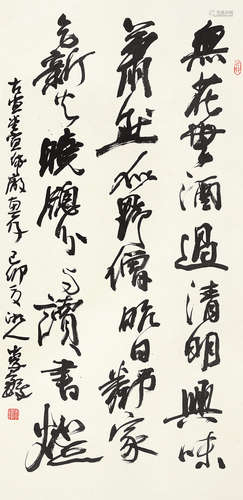 無花無酒過清明興味
蕭然似野僧昨日鄰家
乞新火曉牕分与讀書燈
己卯夏